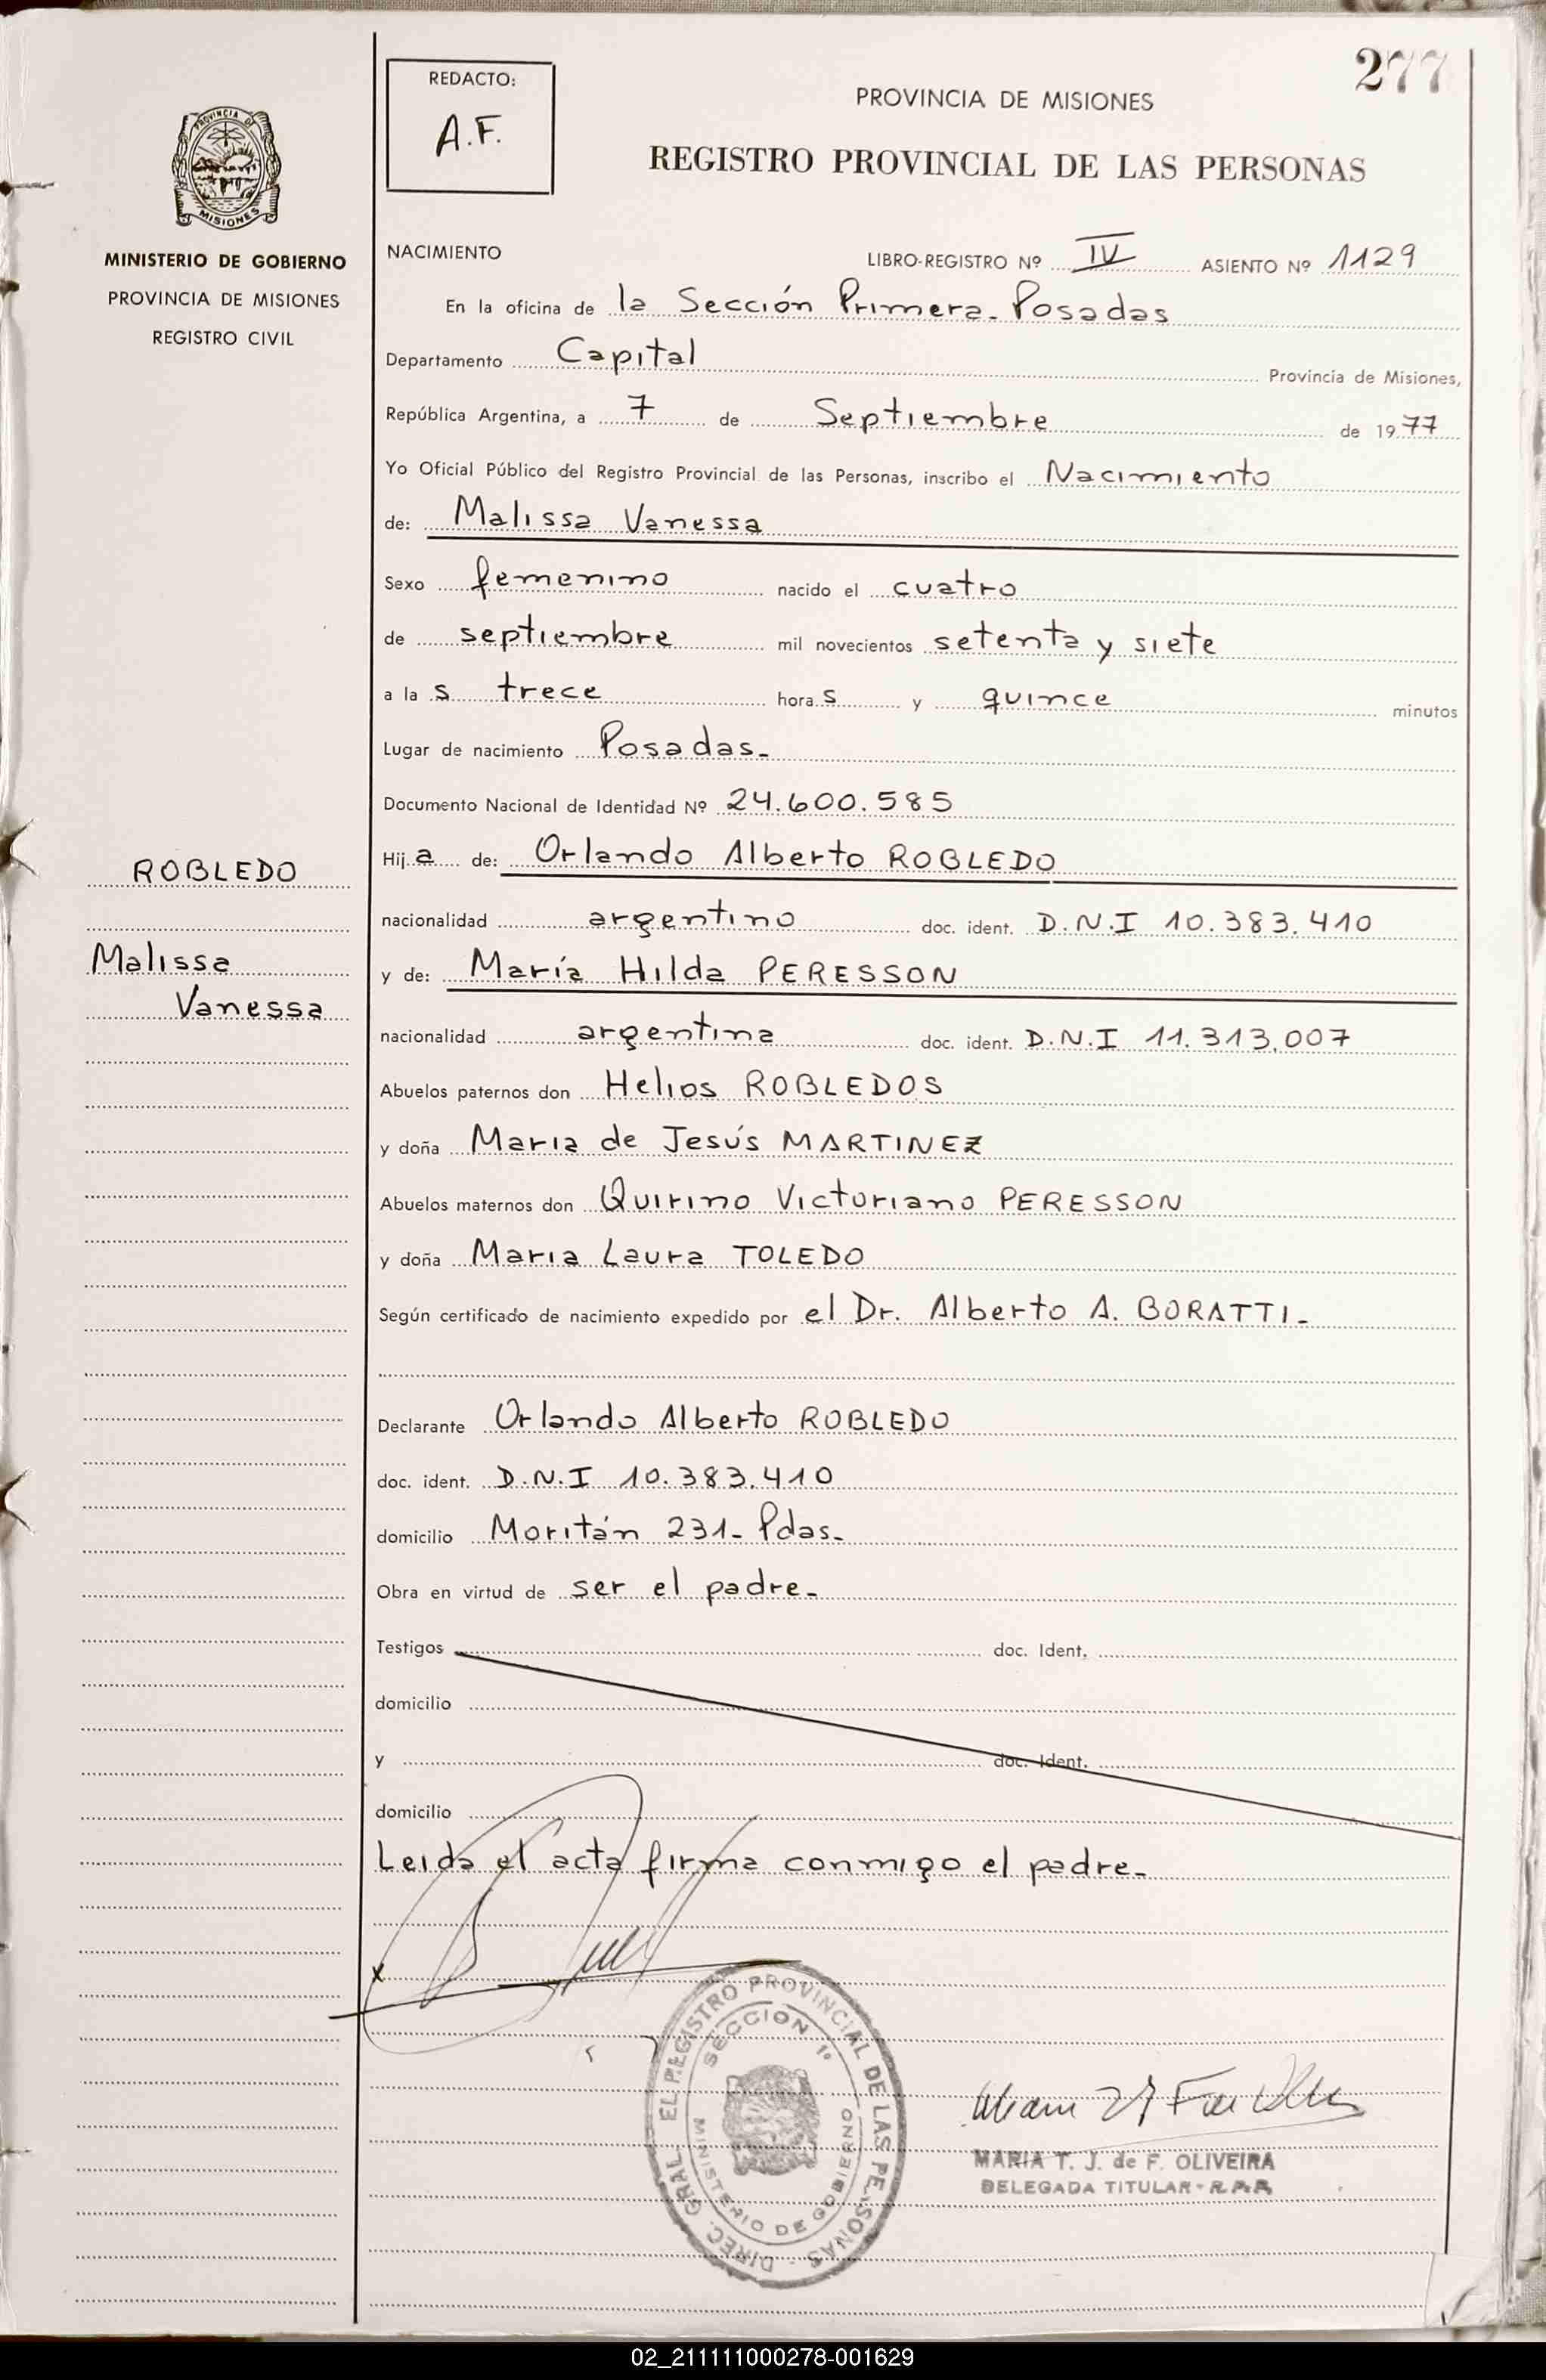 277
REDACTO:
A.F.
PROVINCIA DE MISIONES
REGISTRO PROVINCIAL DE LAS PERSONAS
PROVINCIA DE
MISIONES
MINISTERIO DE GOBIERNO
PROVINCIA DE MISIONES
REGISTRO CIVIL
NACIMIENTO LIBRO-REGISTRO Nº IV ASIENTO Nº 1129
En la oficina de la Sección Primera - Posadas
Departamento Capital Provincia de Misiones,
República Argentina, a 7 de Septiembre de 1977
Yo Oficial Público del Registro Provincial de las Personas, inscribo el Nacimiento
de: Malissa Vanessa
Sexo femenino nacido el cuatro
de septiembre mil novecientos setenta y siete
a la s trece hora s y quince minutos
Lugar de nacimiento Posadas-
Documento Nacional de Identidad Nº 24.600.585
ROBLEDO
Malissa
Vanessa
Hij a de: Orlando Alberto ROBLEDO
nacionalidad argentino doc. ident. D.N.I 10.383.410
y de: María Hilda PERESSON
nacionalidad argentina doc. ident. D.N.I 11.313.007
Abuelos paternos don Helios ROBLEDOS
y doña Maria de Jesús MARTINEZ
Abuelos maternos don Quirino Victoriano PERESSON
y doña Maria Laura TOLEDO
Según certificado de nacimiento expedido por el Dr. Alberto A. BORATTI-
Declarante Orlando Alberto ROBLEDO
doc. ident. D.N.I 10.383.410
domicilio Moritán 231- Pdas-
Obra en virtud de ser el padre-
Testigos doc. Ident.
domicilio
y doc. Ident.
domicilio
Leida el acta firma conmigo el padre-
x
DIREC. GRAL EL REGISTRO PROVINCIAL DE LAS PERSONAS -
SECCION 1º
MINISTERIO DE GOBIERNO
MARIA T. J. de F. OLIVEIRA
DELEGADA TITULAR - R.P.P.
02_211111000278-001629